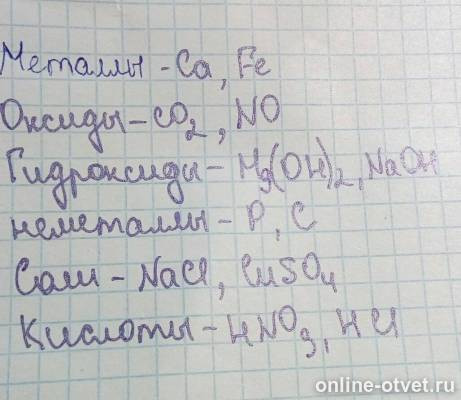 Металлы - Ca, Fe
Оксиды - CO2, NO
Гидроксиды - Mg(OH)2, NaOH
неметаллы - P, C
Соли - NaCl, CuSO4
Кислоты - HNO3, HCl
online-otvet.ru